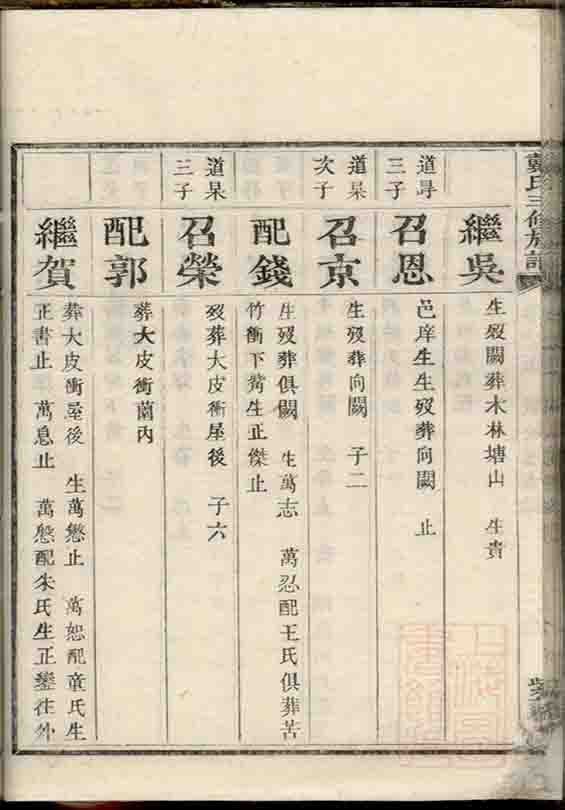 戴氏三修族譜
繼吳
生歿闕葬木林塘山　生貴
道尋
三子
召恩
邑庠生生歿葬向闕　止
道杲
次子
召京
生歿葬向闕　子二
配錢
生歿葬俱闕　生萬志　萬忍配王氏俱葬苦
竹衝下茼生正傑止
道杲
三子
召榮
歿葬大皮衝屋後　子六
配郭
葬大皮衝蘭內
繼賀
葬大皮衝屋後　生萬懲止　萬恕配童氏生
正書止　萬息止　萬慇配朱氏生正鑾往外